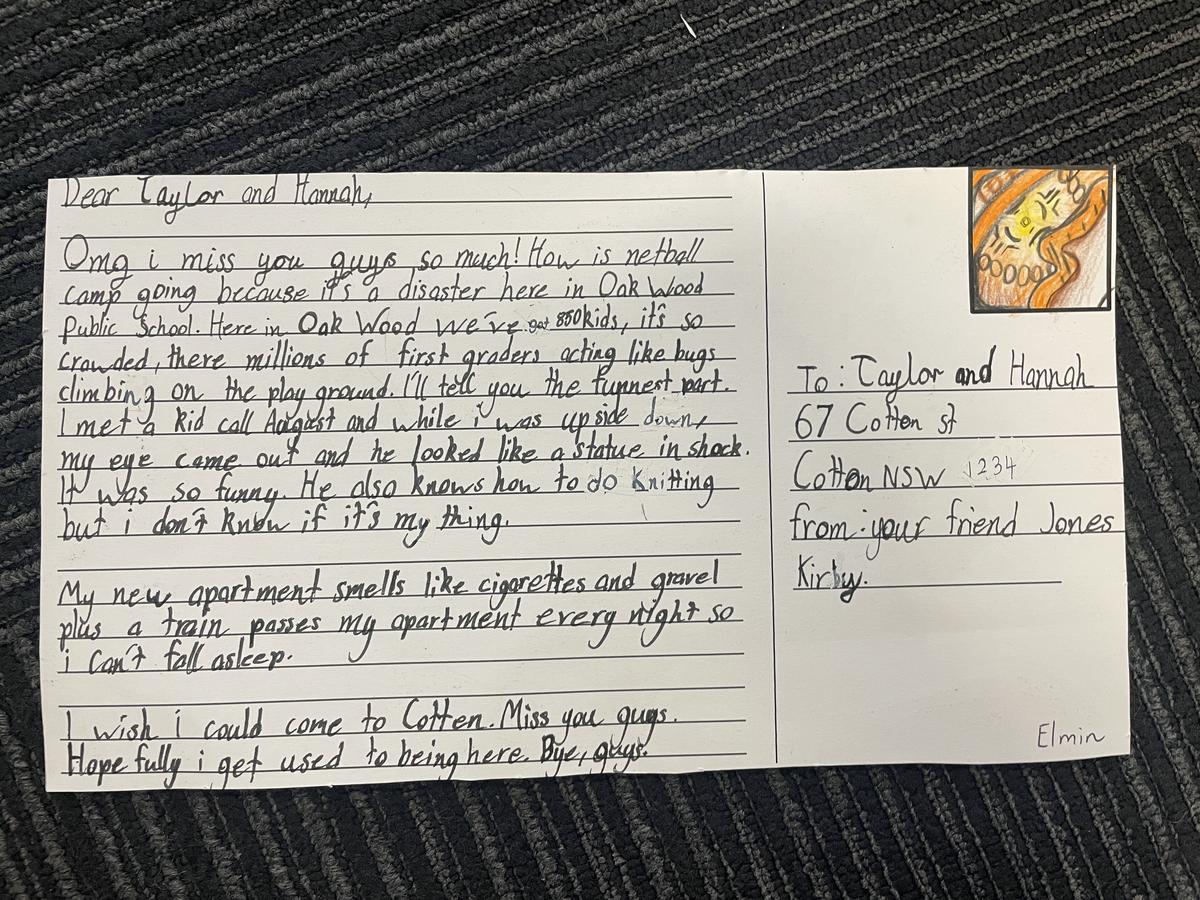 Dear Taylor and Hannah,
Omg i miss you guys so much! How is netball
camp going because it's a disaster here in Oak Wood
Public School. Here in Oak Wood we've got 850 kids, it's so
crowded, there millions of first graders acting like bugs
climbing on the play ground. I'll tell you the funnest part.
I met a kid call August and while i was upside down,
my eye came out and he looked like a statue in shock.
It was so funny. He also knows how to do knitting
but i don't know if it's my thing.
My new apartment smells like cigarettes and gravel
plus a train passes my apartment every night so
i can't fall asleep.
I wish i could come to Cotten. Miss you guys.
Hopefully i get used to being here. Bye, guys.
To: Taylor and Hannah
67 Cotten st
Cotton NSW 1234
from: your friend Jones
Kirby.
Elmin